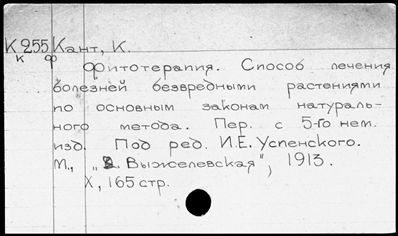 К 255 Кант, К.
к ф
Фитотерапия. Способ лечения
болезней безвредными растениями
по основным законам натураль-
ного метода. Пер. с 5-го нем.
изд. Под ред. И.Е. Успенского.
М., "В. Выжелевская", 1913.
X, 165 стр.